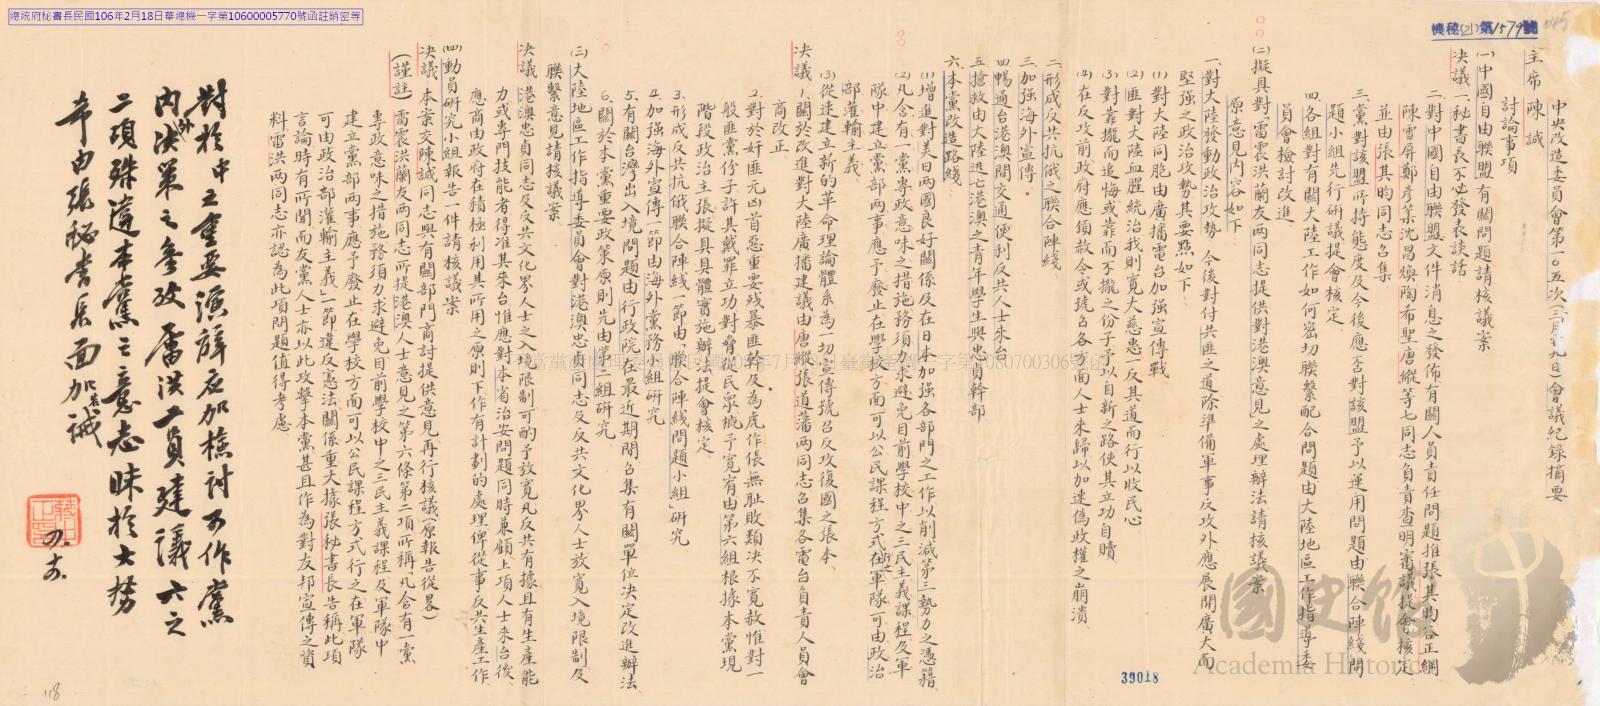 總統府秘書長民國106年2月18日華總機一字第10600005770號函註銷密等
機秘(21)第1579號
中央改造委員會第一○五次(三月十九日)會議紀錄摘要
主席 陳誠
討論事項
(一)中國自由聯盟有關問題請核議案
決議 一秘書長不必發表談話
二對中國自由聯盟文件消息之發佈有關人員責任問題推張其昀谷正綱
陳雪屏鄭彥棻沈昌煥陶希聖唐縱等七同志負責查明審議提會核定
並由張其昀同志召集
三黨對該盟所持態度及今後應否對該盟予以運用問題由聯合陣綫問
題小組先行研議提會核定
四各組對有關大陸工作如何密切聯繫配合問題由大陸地區工作指導委
員會檢討改進
(二)擬具對雷震洪蘭友兩同志提供對港澳意見之處理辦法請核議案
原意見內容如下
一對大陸發動政治攻勢 今後對付共匪之道除準備軍事反攻外應展開廣大而
堅强之政治攻勢其要點如下
(1)對大陸同胞由廣播電台加强宣傳戰
(2)匪對大陸血腥統治我則寬大慈惠一反其道而行以收民心
(3)對靠攏而追悔或靠而不攏之份子予以自新之路使其立功自贖
(4)在反攻前政府應頒赦令或號召各方面人士來歸以加速偽政權之崩潰
二形成反共抗俄之聯合陣綫
三加强海外宣傳
四暢通台港澳間交通便利反共人士來台
五搶救由大陸逃亡港澳之青年學生與忠貞幹部
六本黨改造路綫
(1)增進對美日兩國良好關係及在日本加强各部門之工作以削減第三勢力之憑藉
(2)凡含有一黨專政意味之措施務須力求避免目前學校中之三民主義課程及軍
隊中建立黨部兩事應予廢止在學校方面可以公民課程方式在軍隊可由政治
部灌輸主義
(3)從速建立新的革命理論體系為一切宣傳號召反攻復國之張本
決議 1.關於改進對大陸廣播建議由唐縱張道藩兩同志召集各電台負責人員會
商改正
2.對於奸匪元凶首惡重要殘暴匪幹及為虎作倀無耻敗類決不寬赦惟對一
般匪黨份子許其戴罪立功對脅從民眾概予寬宥由第六組根據本黨現
階段政治主張擬具具體實施辦法提會核定
3.形成反共抗俄聯合陣綫一節由「聯合陣綫問題小組」研究
4.加强海外宣傳一節由海外黨務小組研究
5.有關台灣出入境問題由行政院在最近期間召集有關單位決定改進辦法
6.關於本黨重要政策原則先由第一組研究
(三)大陸地區工作指導委員會對港澳忠貞同志及反共文化界人士放寬入境限制及
聯繫意見請核議案
決議 港澳忠貞同志及反共文化界人士之入境限制可酌予放寬凡反共有據且有生產能
力或專門技能者得准其來台惟應對本省治安問題同時兼顧上項人士來台後
應商由政府在積極利用其所用之原則下作有計劃的處理俾從事反共生產工作
(四)動員研究小組報告一件請核議案
決議 本案交陳誠同志與有關部門商討提供意見再行核議(原報告從畧)
(謹註)雷震洪蘭友兩同志所提港澳人士意見之第六條第二項所稱「凡含有一黨
專政意味之措施務須力求避免目前學校中之三民主義課程及軍隊中
建立黨部兩事應予廢止在學校方面可以公民課程方式行之在軍隊
可由政治部灌輸主義」一節違反憲法關係重大據張秘書長告稱此項
言論時有所聞而友黨人士亦以此攻擊本黨甚且作為對友邦宣傳之資
料雷洪兩同志亦認為此項問題值得考慮
對於中之重要演辭應加檢討可作黨
內外決策之參考雷洪二員建議六之
二項殊違本黨之意志昧於大勢
希由張秘書長面加告誡
39018
118
國史館
Academia Historica